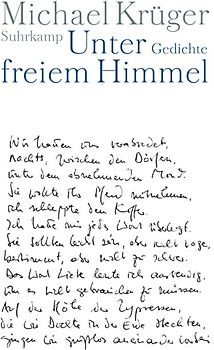 Michael Krüger
Suhrkamp Unter Gedichte
freiem Himmel
Wir hatten uns verabredet,
nachts, zwischen den Dörfern,
unter dem abnehmenden Mond.
Sie wollte ihr Pferd mitnehmen,
ich schleppte den Koffer.
Ich hatte mir jedes Wort überlegt.
Sie sollten leicht sein, aber nicht vage,
bestimmt, aber nicht zu schwer.
Das Wort Liebe lernte ich auswendig,
um es nicht gebrauchen zu müssen.
Auf der Höhe der Zypressen,
die wie Dochte in der Erde steckten,
gingen wir grußlos aneinander vorbei